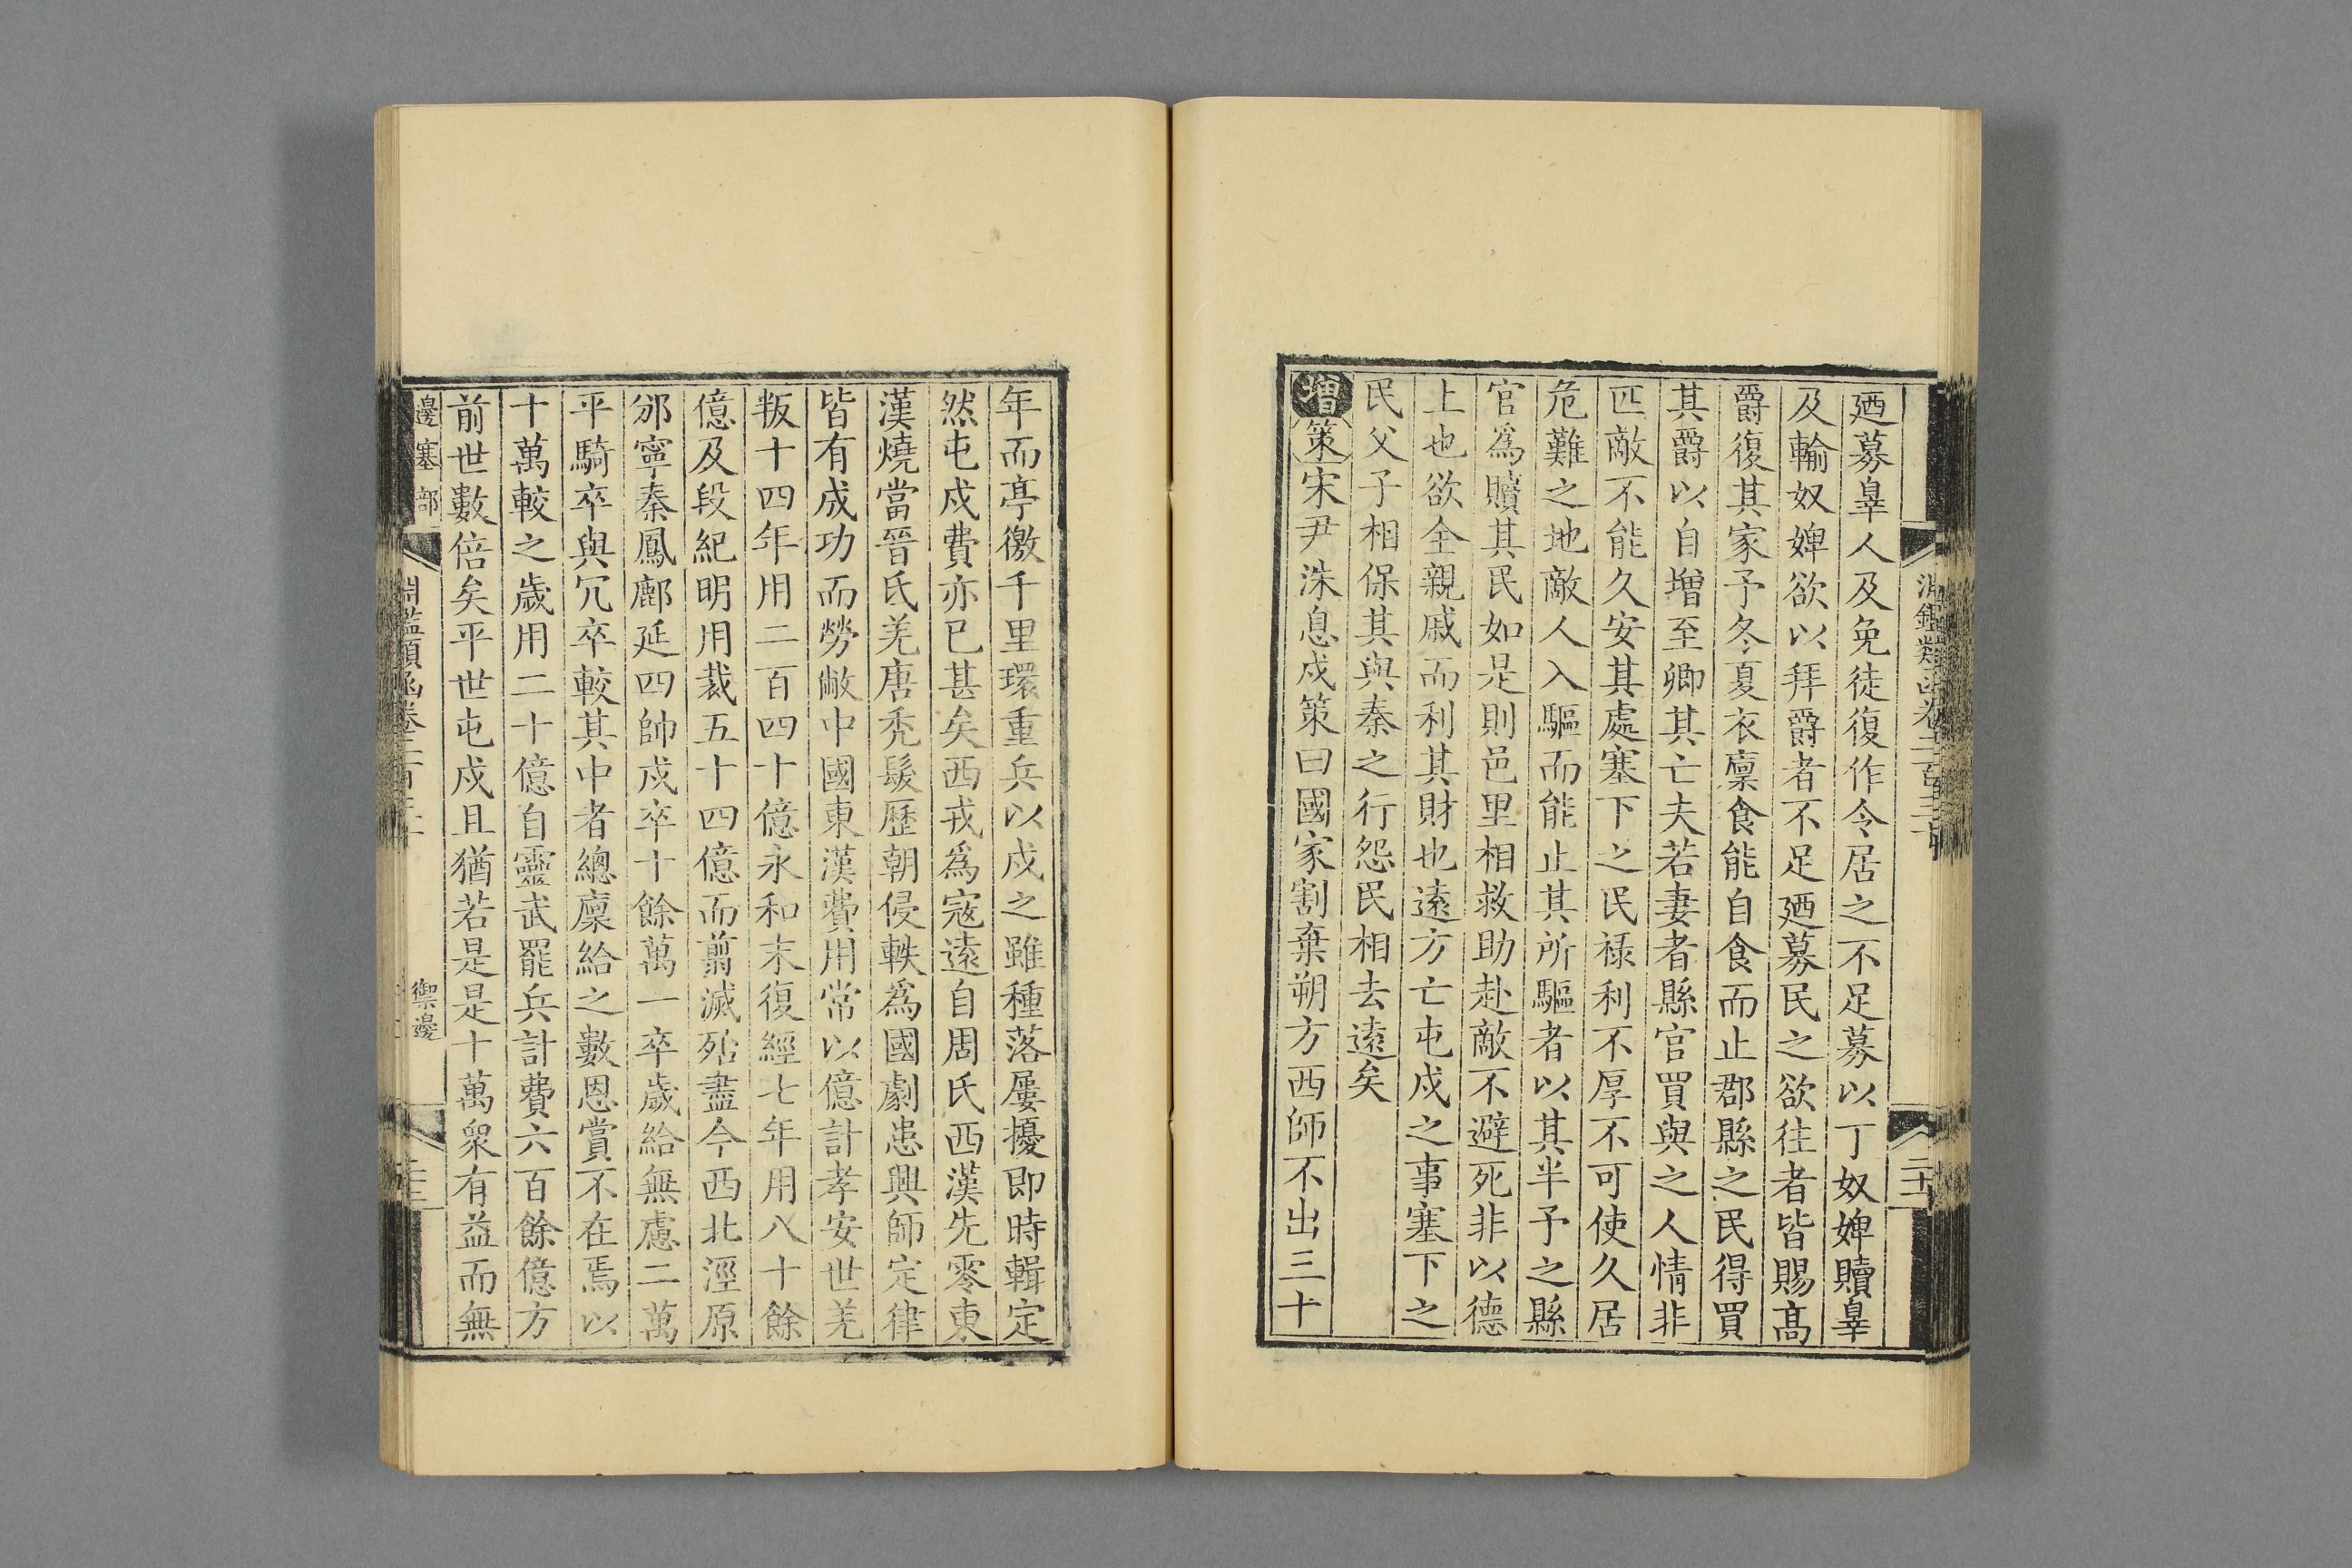 廼募辠人及免徒復作令居之不足募以丁奴婢贖辠
及輸奴婢欲以拜爵者不足廼募民之欲往者皆賜高
爵復其家予冬夏衣廩食能自食而止郡縣之民得買
其爵以自增至卿其亡夫若妻者縣官買與之人情非
匹敵不能久安其處塞下之民祿利不厚不可使久居
危難之地敵人入驅而能止其所驅者以其半予之縣
官爲贖其民如是則邑里相救助赴敵不避死非以德
上也欲全親戚而利其財也遠方亡屯戍之事塞下之
民父子相保其與秦之行怨民相去遠矣
增策宋尹洙息戍策曰國家割棄朔方西師不出三十
年而亭徼千里環重兵以戍之雖種落屢擾即時輯定
然屯戍費亦已甚矣西戎爲寇遠自周氏西漢先零東
漢燒當晉氐羌唐禿髮歷朝侵軼爲國劇患興師定律
皆有成功而勞敝中國東漢費用常以億計孝安世羌
叛十四年用二百四十億永和末復經七年用八十餘
億及段紀明用裁五十四億而翦滅殆盡今西北涇原
邠寧秦鳳鄜延四帥戍卒十餘萬一卒歲給無慮二萬
平騎卒與冗卒較其中者總廩給之數恩賞不在焉以
十萬較之歲用二十億自靈武罷兵計費六百餘億方
前世數倍矣平世屯戍且猶若是是十萬衆有益而無
邊塞部
御邊